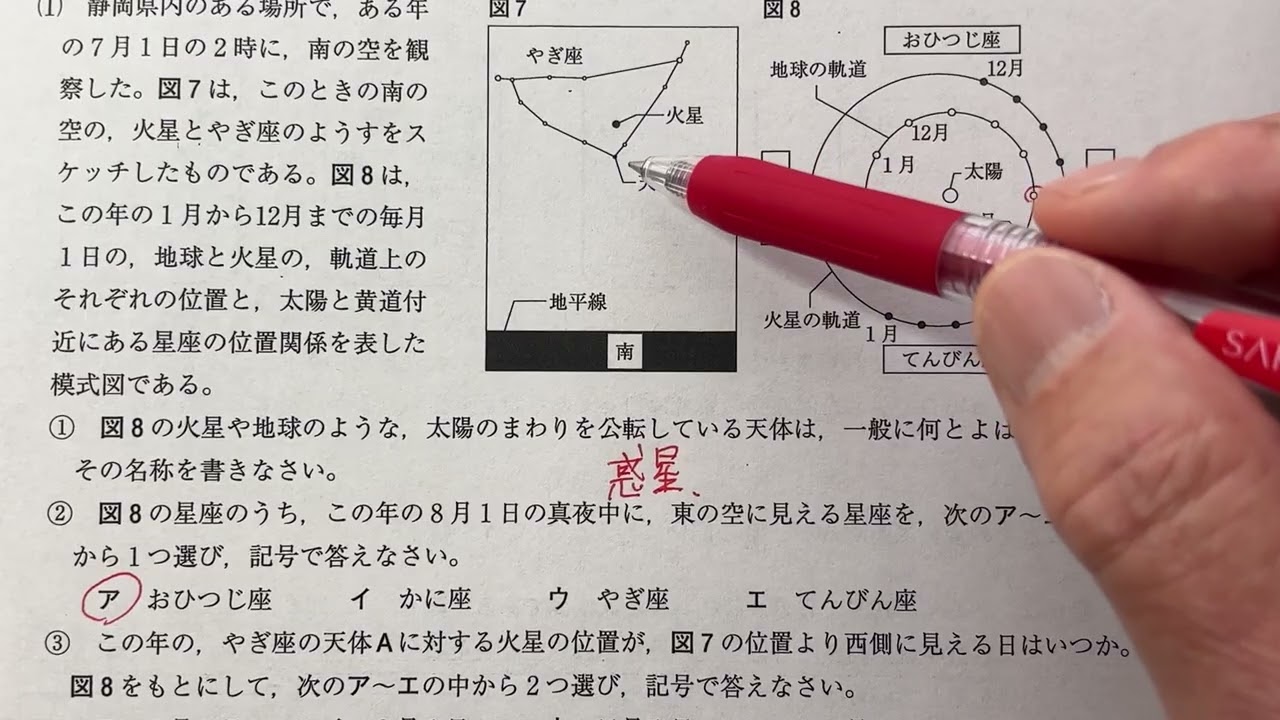 (1) 静岡県内のある場所で，ある年
の7月1日の2時に，南の空を観
察した。図7は，このときの南の
空の，火星とやぎ座のようすをス
ケッチしたものである。図8は，
この年の1月から12月までの毎月
1日の，地球と火星の，軌道上の
それぞれの位置と，太陽と黄道付
近にある星座の位置関係を表した
模式図である。
図7
やぎ座
火星
地平線
南
図8
おひつじ座
地球の軌道
12月
12月
1月
太陽
火星の軌道
1月
てんびん
① 図8の火星や地球のような，太陽のまわりを公転している天体は，一般に何とよは
その名称を書きなさい。
惑星、
② 図8の星座のうち，この年の8月1日の真夜中に，東の空に見える星座を，次のア〜
から1つ選び，記号で答えなさい。
ア おひつじ座 イ かに座 ウ やぎ座 エ てんびん座
③ この年の，やぎ座の天体Aに対する火星の位置が，図7の位置より西側に見える日はいつか。
図8をもとにして，次のア〜エの中から2つ選び，記号で答えなさい。